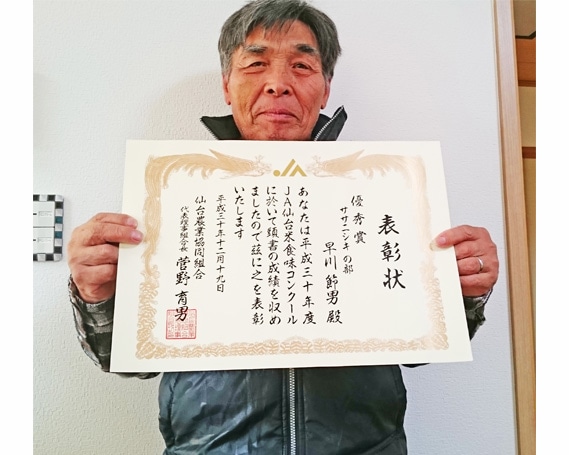 表彰状
優秀賞
ササニシキの部
早川節男殿
あなたは平成三十年度
JA仙台米食味コンクール
に於いて頭書の成績を収め
ましたので茲に之を表彰
いたします
平成三十年十二月十九日
仙台農業協同組合
代表理事組合長 菅野育男